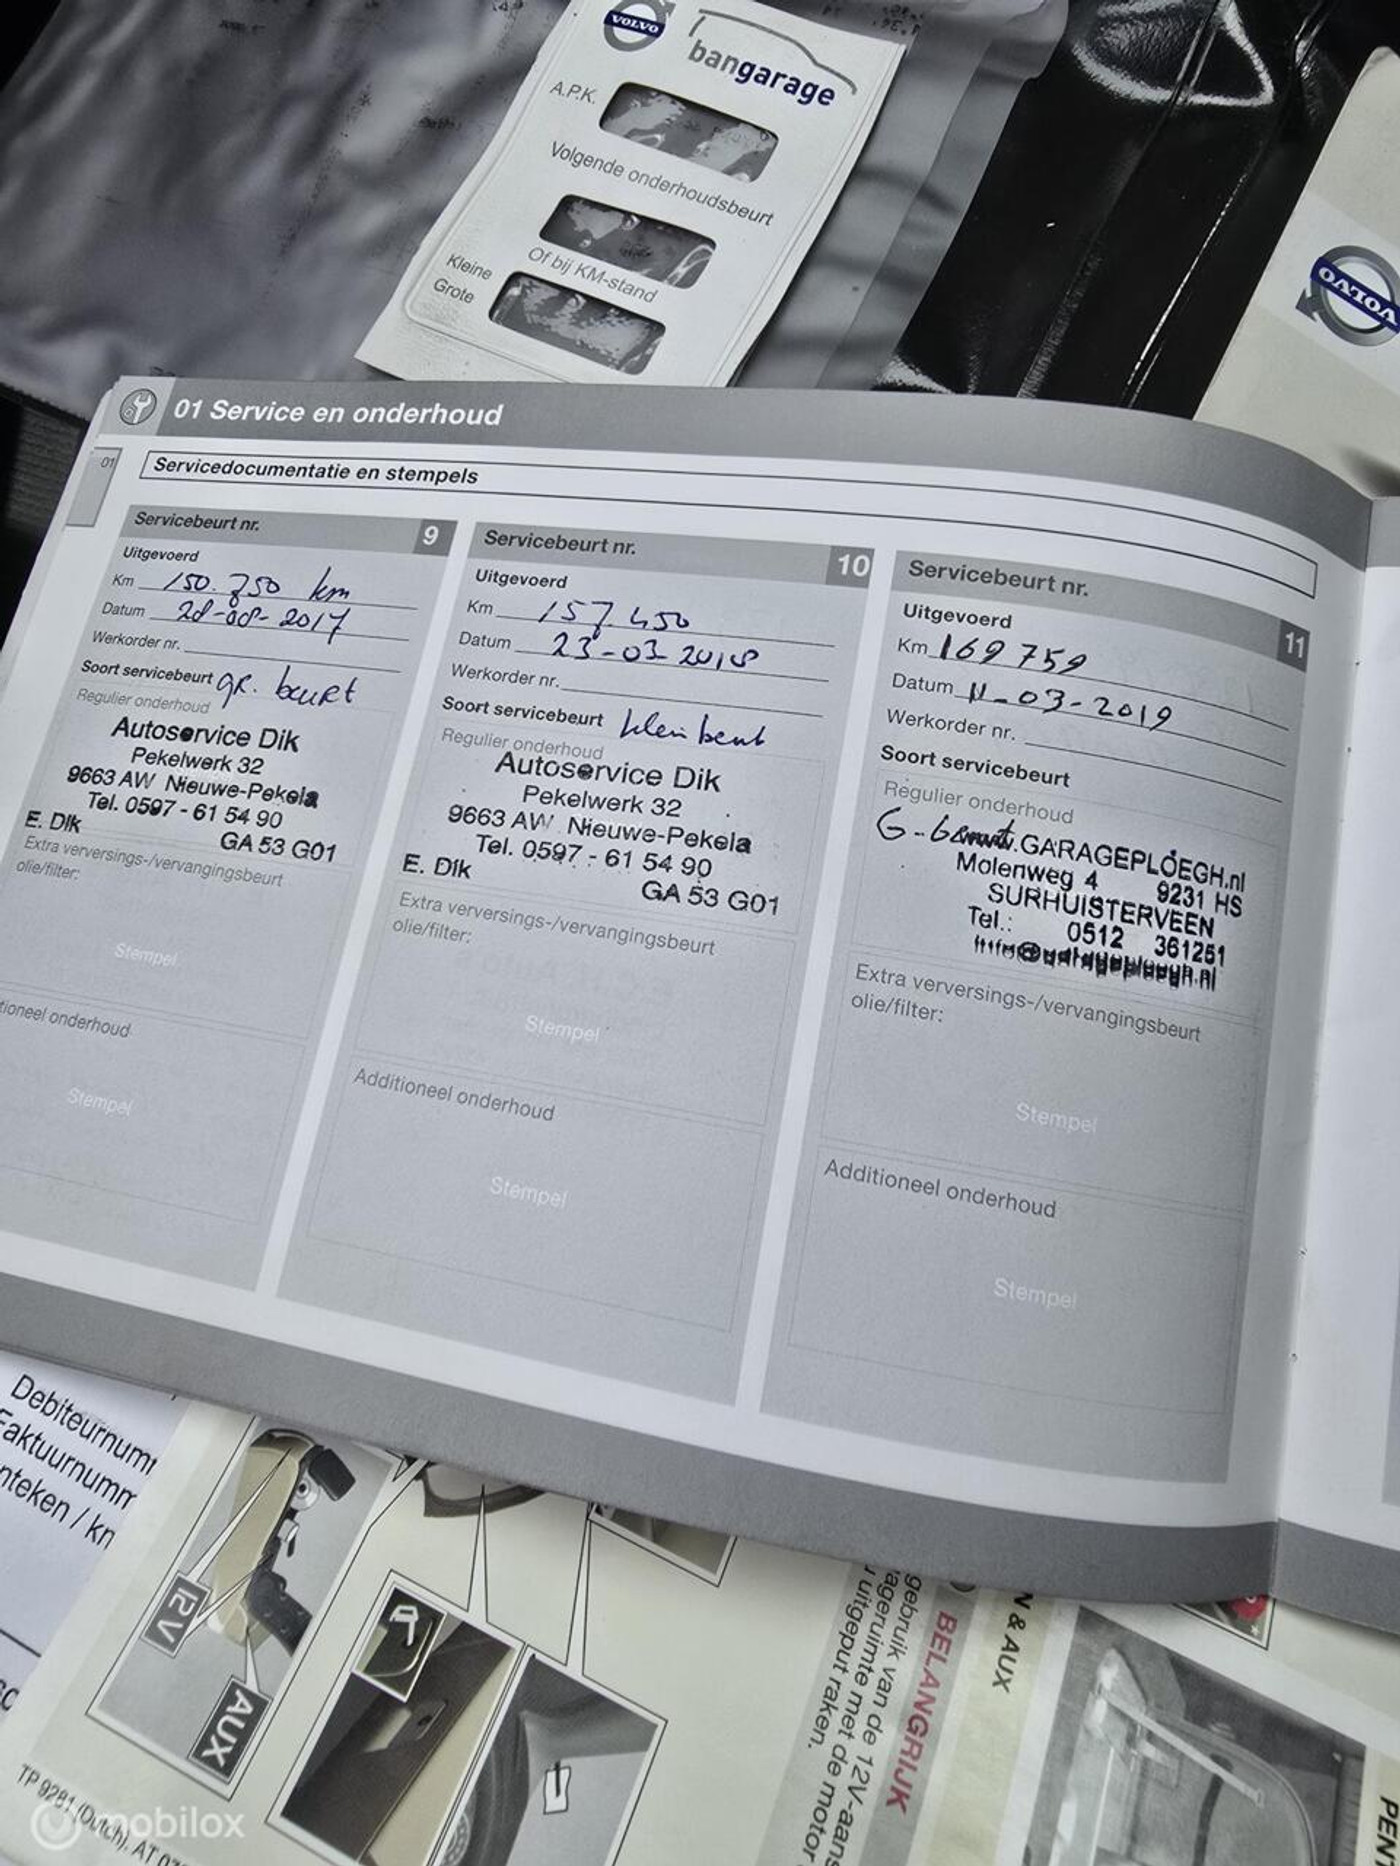 VOLVO
bangarage
A.P.K.
Volgende onderhoudsbeurt
Of bij KM-stand
Kleine
Grote
VOLVO
01 Service en onderhoud
01
Servicedocumentatie en stempels
Servicebeurt nr. 9
Uitgevoerd
Km 150.750 km
Datum 28-08-2017
Werkorder nr.
Soort servicebeurt gr. beurt
Regulier onderhoud
Autoservice Dik
Pekelwerk 32
9663 AW Nieuwe-Pekela
Tel. 0597 - 61 54 90
E. Dik GA 53 G01
Extra verversings-/vervangingsbeurt
olie/filter:
Stempel
tioneel onderhoud
Stempel
Servicebeurt nr. 10
Uitgevoerd
Km 157.450
Datum 23-03-2018
Werkorder nr.
Soort servicebeurt klein beurt
Regulier onderhoud
Autoservice Dik
Pekelwerk 32
9663 AW Nieuwe-Pekela
Tel. 0597 - 61 54 90
E. Dik GA 53 G01
Extra verversings-/vervangingsbeurt
olie/filter:
Stempel
Additioneel onderhoud
Stempel
Servicebeurt nr. 11
Uitgevoerd
Km 169 759
Datum 11-03-2019
Werkorder nr.
Soort servicebeurt
Regulier onderhoud
GARAGEPLOEGH.nl
Molenweg 4 9231 HS
SURHUISTERVEEN
Tel.: 0512 361251
info@garageploegh.nl
Extra verversings-/vervangingsbeurt
olie/filter:
Stempel
Additioneel onderhoud
Stempel
Debiteurnumm
Faktuurnumm
nteken / kn
12V
AUX
TP 9281 (Dutch). AT
mobilox
N & AUX
BELANGRIJK
gebruik van de 12V-aans
agerruimte met de motor
uitgeput raken.
PEN